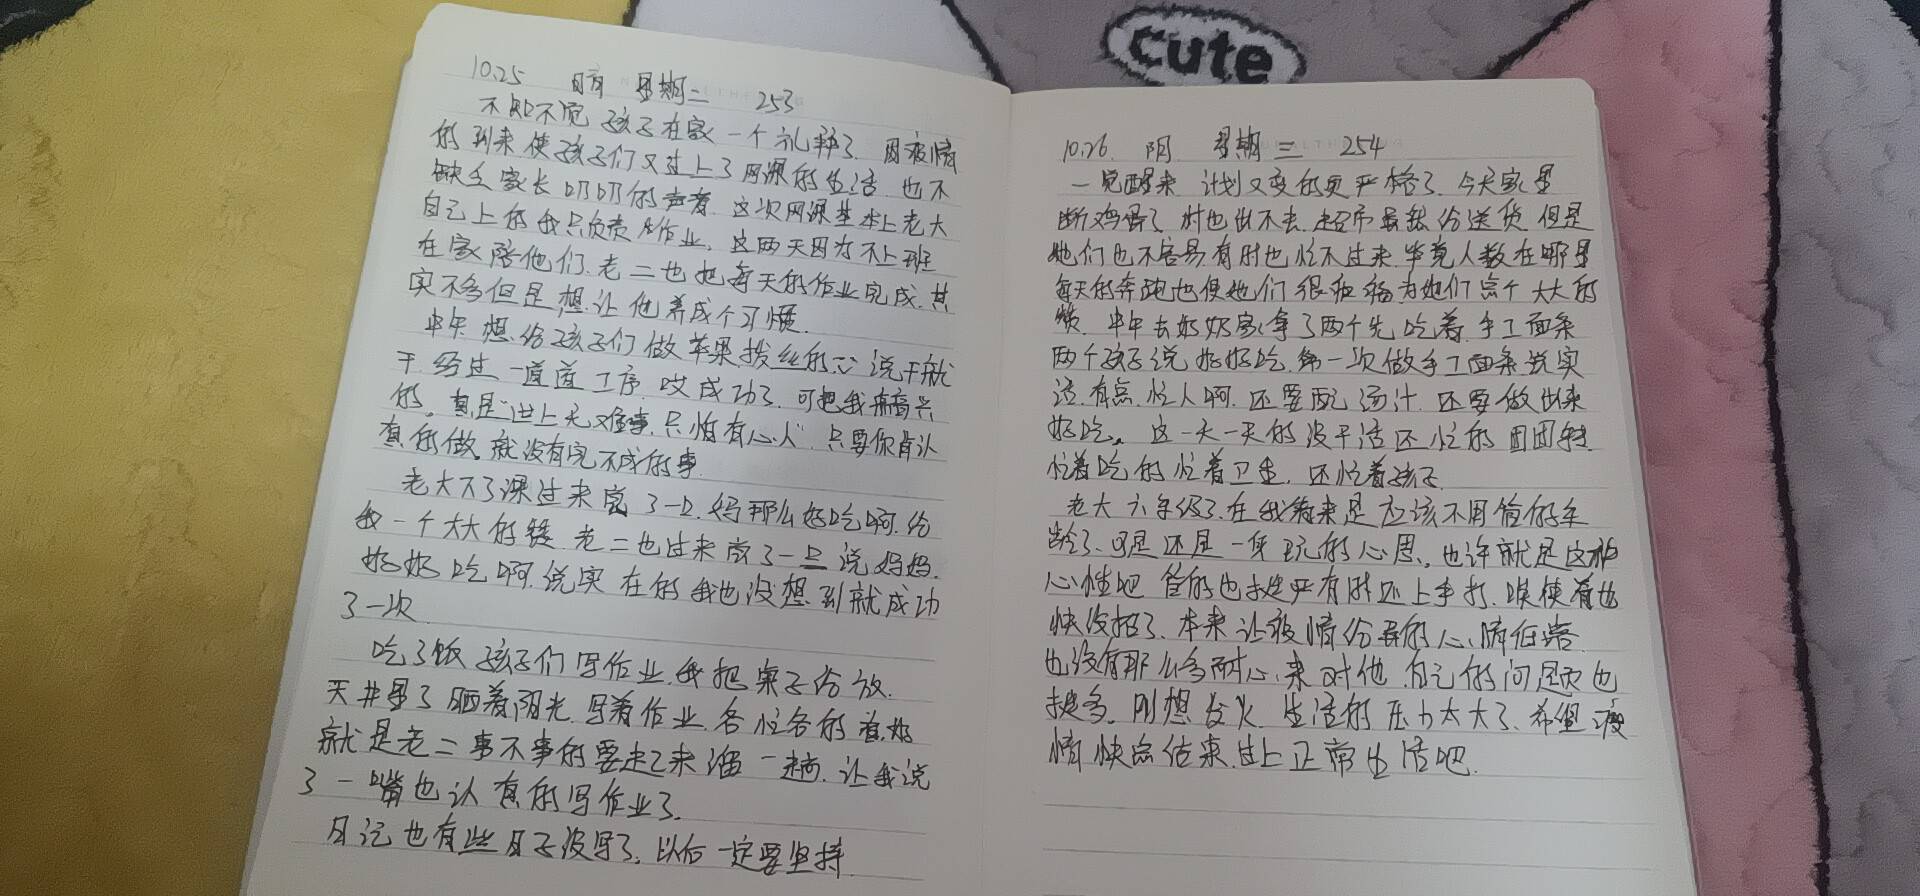 cute
10.25 晴 星期二 253
不知不觉 孩子在家一个礼拜了. 因疫情
的到来使孩子们又过上了网课的生活. 也不
缺乏家长叨叨的声音. 这次网课基本上老大
自己上的我只负责作业. 这两天因为不上班
在家陪他们. 老二也把每天的作业完成. 其
实不多但是想让他养成个习惯.
中午想给孩子们做苹果拔丝的 说干就
干. 经过一道道工序. 哎成功了. 可把我高兴
的。真是"世上无难事.只怕有心人" 只要你肯认
真的做. 就没有完不成的事.
老大下了课过来尝了一口. 妈那么好吃啊. 给
我一个大大的赞. 老二也过来尝了一口 说妈妈.
好好吃啊. 说实在的我也没想到就成功
了一次.
吃了饭孩子们写作业. 我把桌子给放.
天井里了 晒着阳光. 写着作业. 各忙各的 着.
就是老二事不事的要起来溜一趟. 让我说
了一嘴也认真的写作业了.
日记也有些日子没写了. 以后一定要坚持.
10.26. 阴 星期三 254
一觉醒来 计划又变的更严格了. 今天家里
断鸡蛋了 时也出不去. 超市虽然给送货 但是
她们也不容易有时也忙不过来. 毕竟人数在哪里
每天的奔跑也使她们很疲惫 为她们点个大大的
赞. 中午去奶奶家拿了两个先吃着. 手工面条
两个孩子说好好吃. 第一次做手工面条说实
话. 有点忙人啊. 还要配汤汁. 还要做出来
好吃。 这一天一天的没干活还忙的团团转.
忙着吃的忙着卫生. 还忙着孩子.
老大六年级了. 在我看来是应该不用管的年
龄了. 可是还是一年玩的心思. 也许就是这种
心性吧 管的也挺严有时还上手打. 唉使着也
快没招了. 本来让疫情给弄的心情低落
也没有那么多耐心. 来对他. 自己的问题也
挺多. 刚想发火. 生活的压力太大了. 希望疫
情快点结束. 过上正常生活吧.